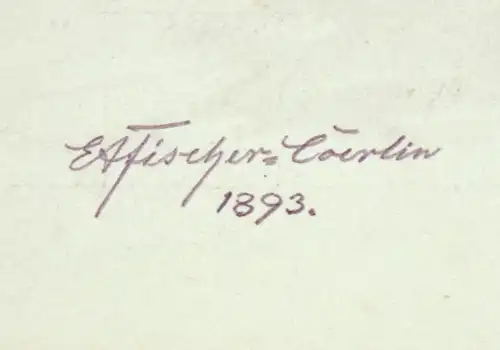 EAFischer=Cöerlin
1893.